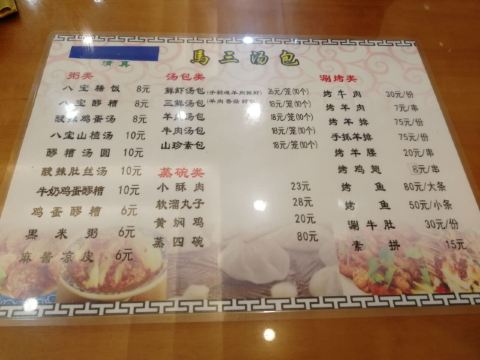 清真
馬三汤包
粥类
八宝稀饭 8元
八宝醪糟 8元
酸辣鸡蛋汤 8元
八宝山楂汤 10元
醪糟汤圆 10元
酸辣肚丝汤 10元
牛奶鸡蛋醪糟 10元
鸡蛋醪糟 6元
黑米粥 6元
麻酱凉皮 6元
汤包类
鲜虾汤包 /笼(10个)
三鲜汤包 18元/笼(10个)
羊肉汤包 18元/笼(10个)
牛肉汤包 18元/笼(10个)
山珍素包 18元/笼(10个)
蒸碗类
小酥肉 23元
软溜丸子 28元
黄焖鸡 20元
蒸四碗 80元
涮烤类
烤牛肉 30元/份
烤羊肉 7元/串
烤羊排 75元/份
手抓羊排 75元/份
烤羊腰 20元/串
烤鸡翅 8元/串
烤鱼 80元/大条
烤鱼 50元/小条
涮牛肚 30元/份
素拼 15元